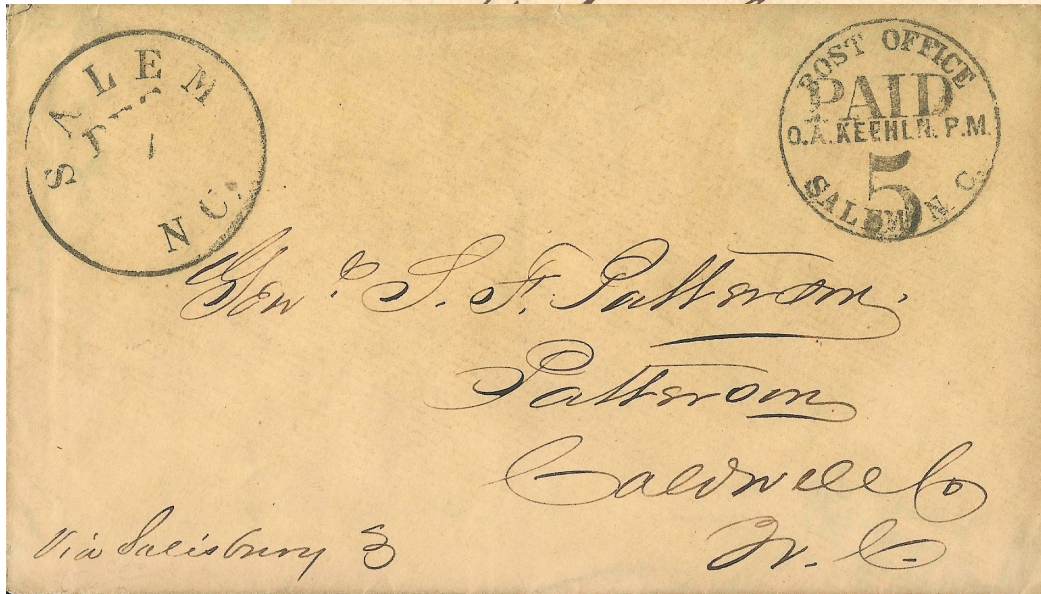 SALEM
DEC
1
N C.
POST OFFICE
PAID
O.A. KEEHLN. P.M.
5
SALEM N C.
Genl. S. F. Patterson.
Patterson
Caldwell Co
N. C.
Via Salisbury